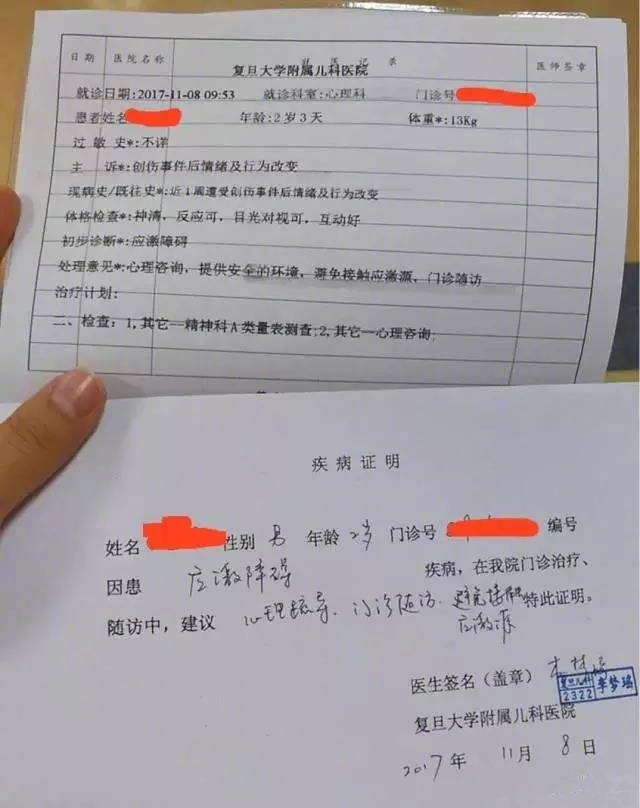 日期 医院名称 就医记录 医师签章
复旦大学附属儿科医院
就诊日期:2017-11-08 09:53 就诊科室:心理科 门诊号
患者姓名 年龄:2岁3天 体重*:13Kg
过敏史*:不详
主诉*:创伤事件后情绪及行为改变
现病史/既往史*:近1周遭受创伤事件后情绪及行为改变
体格检查*:神清，反应可，目光对视可，互动好
初步诊断*:应激障碍
处理意见*:心理咨询，提供安全的环境，避免接触应激源，门诊随访
治疗计划:
二、检查：1,其它--精神科A类量表测查;2,其它--心理咨询;
疾病证明
姓名 性别 男 年龄 2岁 门诊号 编号
因患 应激障碍 疾病，在我院门诊治疗、
随访中，建议 心理疏导、门诊随访、避免接触 特此证明。
应激源
医生签名（盖章）
复旦儿科 李梦瑶
2322
复旦大学附属儿科医院
2017年 11月 8日